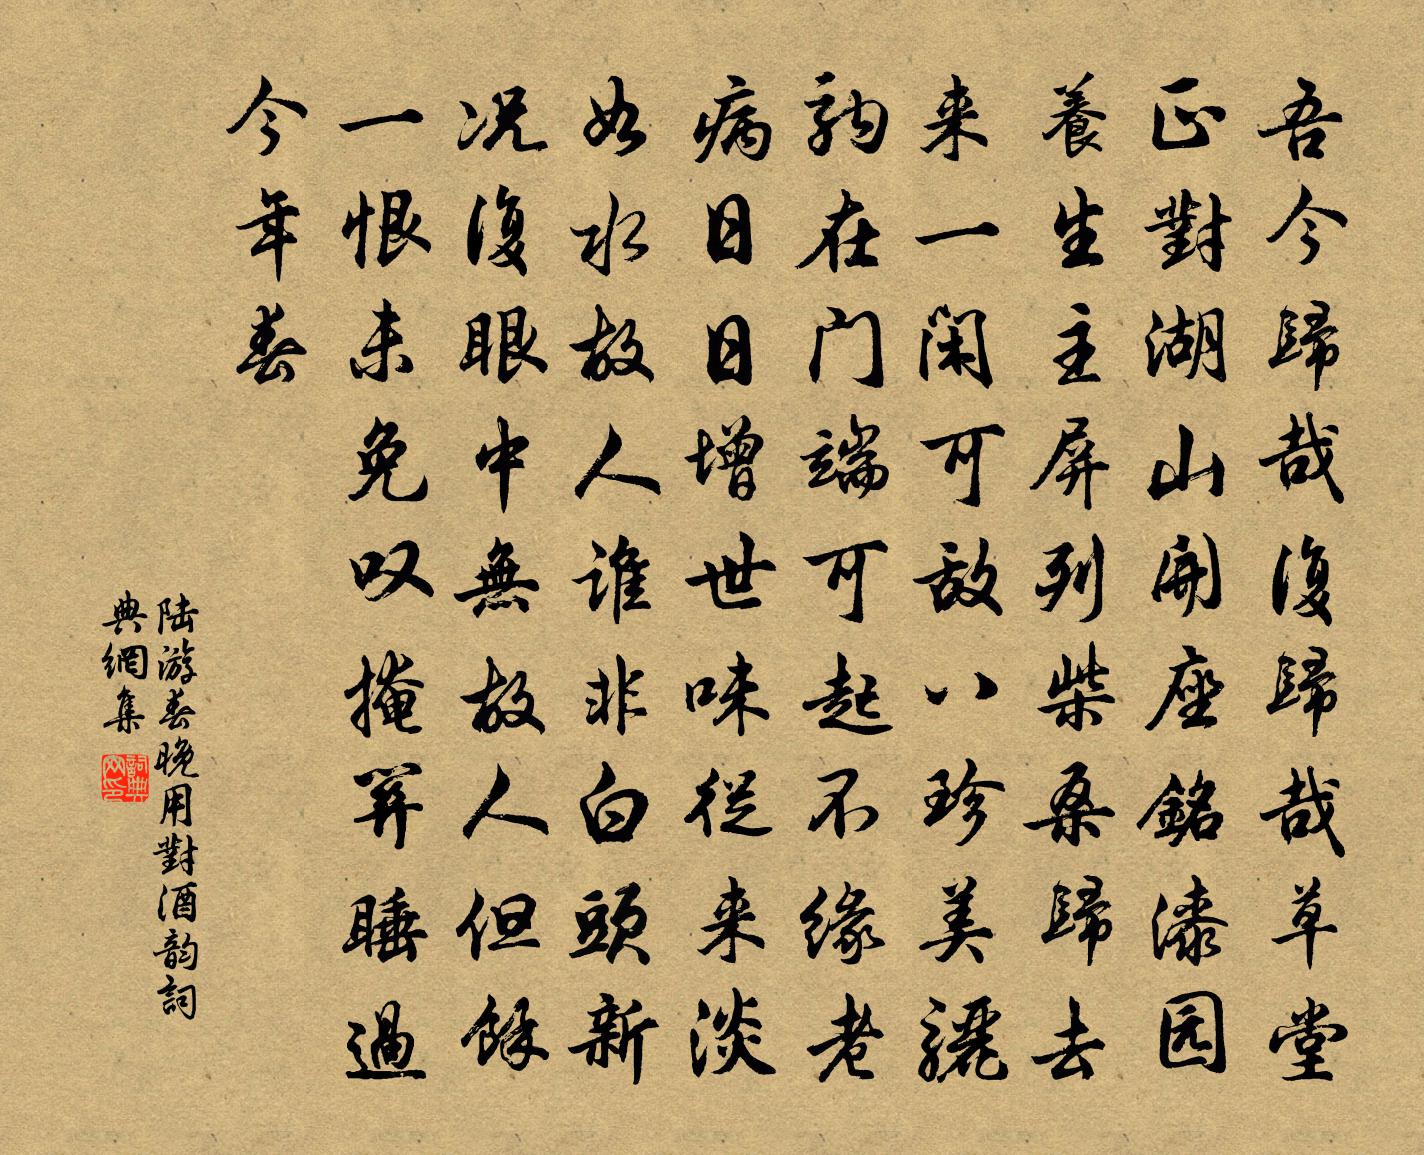 吾今歸哉復歸哉草堂
正對湖山開座銘漆园
養生主屏列柴桑歸去
来一閑可敵八珍美驪
駒在門端可起不緣老
病日日增世味從来淡
如水故人誰非白頭新
况復眼中無故人但餘
一恨未免叹掩關睡過
今年春
陆游春晚用對酒韵詞
典網集
詞典网印